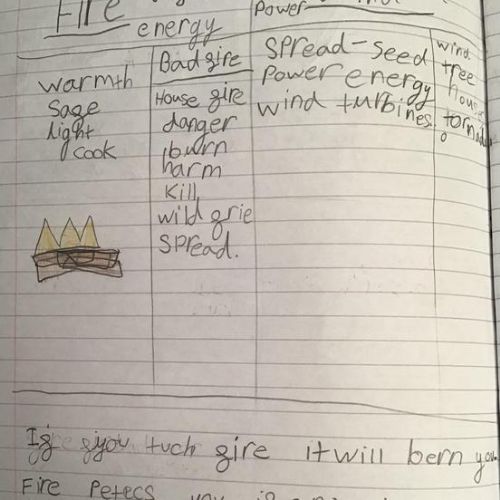 Fire
energy
warmth
Sage
light
cook
Bad gire
House gire
danger
burn
harm
Kill
wild grie
spread.
Power
spread-seed
power energy
wind turbines.
wind
tree
Ig you tuch gire it will bern you
Fire Petecs you